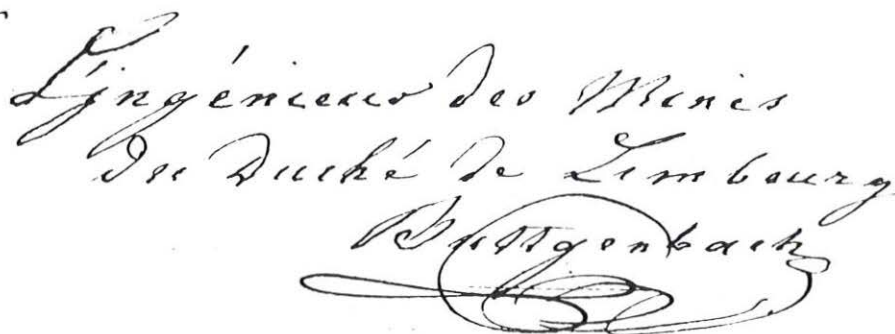 L'jngénieur des Mines
du Duché de Limbourg
Büttgenbach